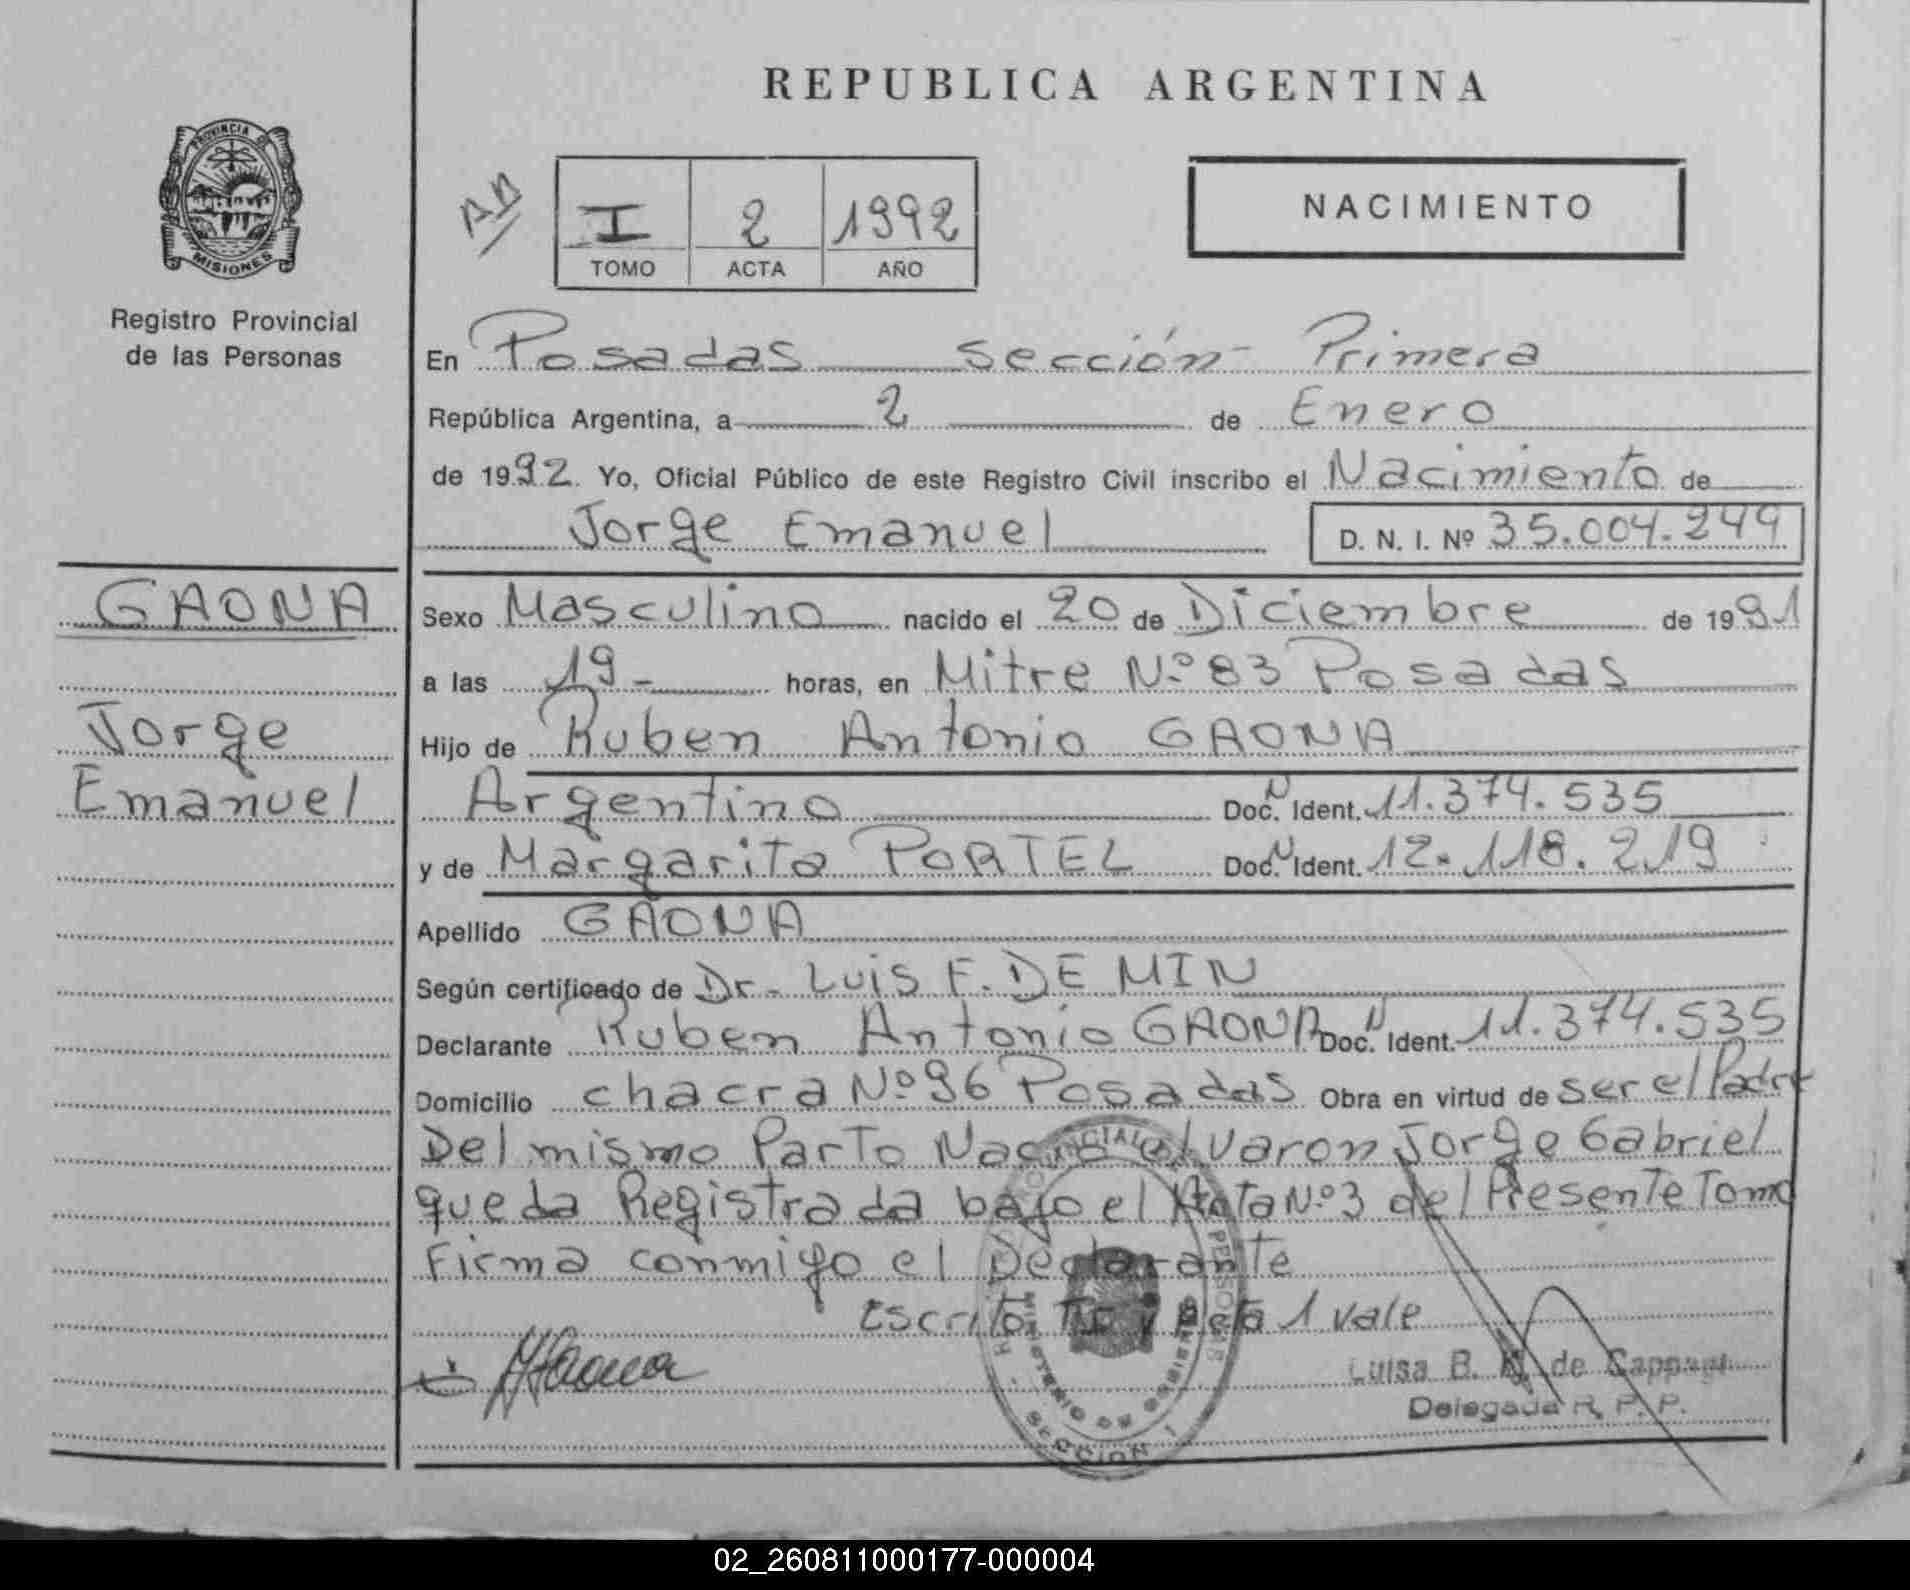 REPUBLICA ARGENTINA
PROVINCIA DE
MISIONES
Registro Provincial
de las Personas
I 2 1992
TOMO ACTA AÑO
NACIMIENTO
En Posadas sección Primera
República Argentina, a 2 de Enero
de 1992. Yo, Oficial Público de este Registro Civil inscribo el Nacimiento de
Jorge Emanuel D. N. I. Nº 35.004.249
GAONA
Jorge
Emanuel
Sexo Masculino nacido el 20 de Diciembre de 1991
a las 19- horas, en Mitre Nº 83 Posadas
Hijo de Ruben Antonio GAONA
Argentino Doc. Ident. 11.374.535
y de Margarita PORTEL Doc. Ident. 12.118.219
Apellido GAONA
Según certificado de Dr. Luis F. DE MIN
Declarante Ruben Antonio GAONA Doc. Ident. 11.374.535
Domicilio chacra Nº 96 Posadas Obra en virtud de ser el Padre
Del mismo Parto Nació el varon Jorge Gabriel
queda Registrada bajo el Acta Nº 3 del Presente Tomo
Firma conmigo el Declarante
Escrito: 1 vale
Gaona
Luisa B. de
Delegada R. P. P.
SECCION 1
02_260811000177-000004